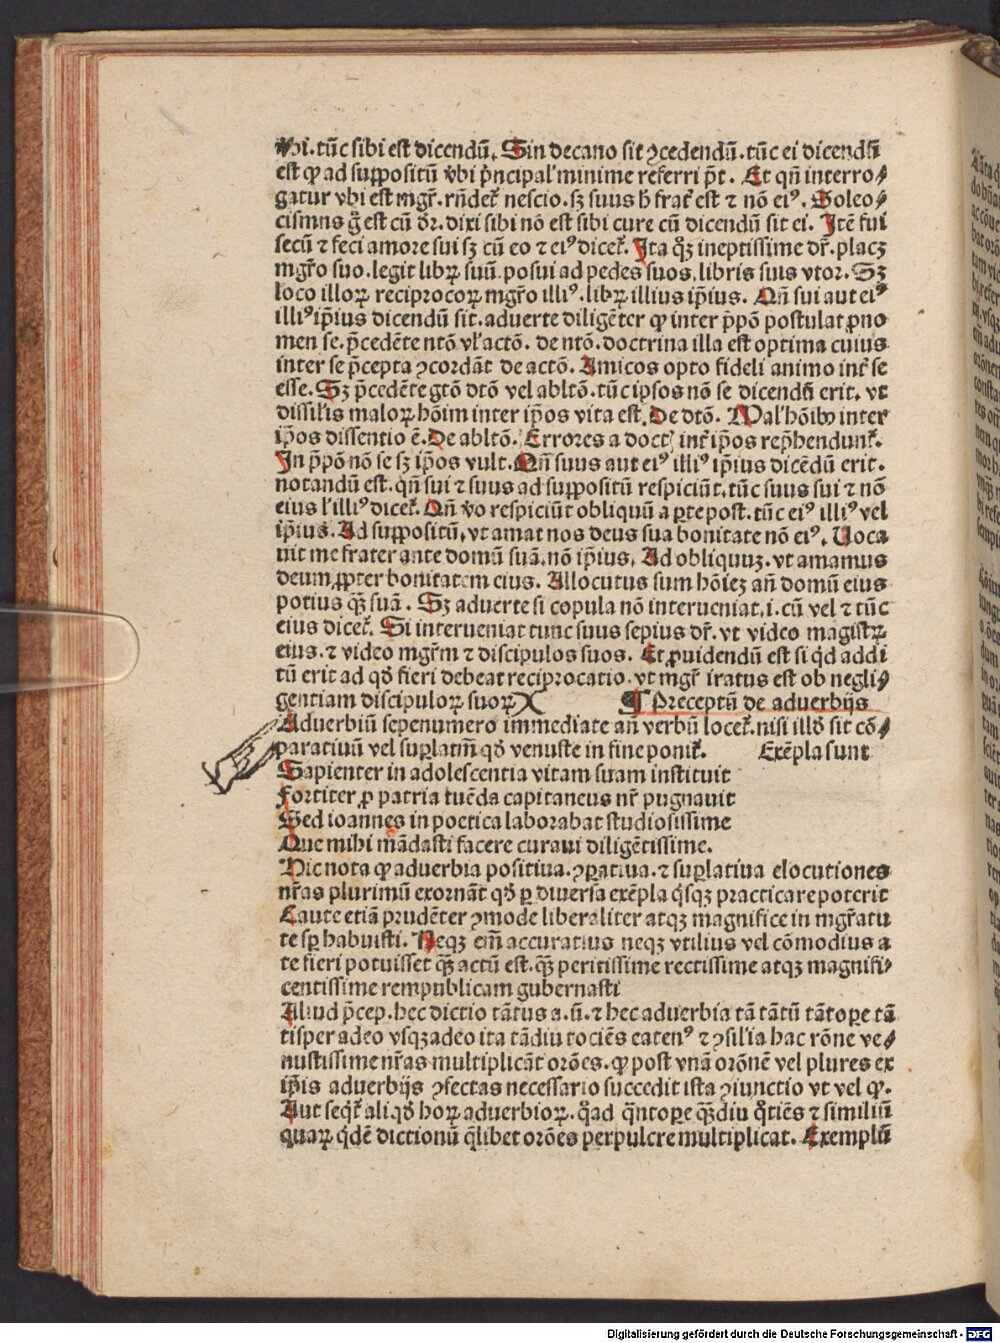 vbi. tũc sibi est dicendũ. Sin decano sit ꝯcedendũ. tũc ei dicendũ
est ꝙ ad suꝓpositũ vbi p̃ncipal' minime referri pt̃. Et qñ interro⸗
gatur vbi est mgr̃. rñdet᷑ nescio. sꝫ suus h̃ frat᷑ est ⁊ nõ eiꝰ. Soleo⸗
cismus g̃ est cũ dr̃. dixi sibi nõ est sibi cure cũ dicendũ sit ei. Itẽ fui
secũ ⁊ feci amore sui sꝫ cũ eo ⁊ eiꝰ dicet᷑. Ita qꝫ̃ ineptissime dr̃. placꝫ
mgr̃o suo. legit libꝝ suũ. posui ad pedes suos. libris suis vtor. Sꝫ
loco illoꝝ reciprocoꝝ mgr̃o illiꝰ. libꝝ illius ip̃ius. Qñ sui aut eiꝰ
illiꝰ ip̃ius dicendũ sit. aduerte diligẽter ꝙ inter p̃põ postulat ꝓno
men se. p̃cedẽte ntõ vl' actõ. de ntõ. doctrina illa est optima cuius
inter se p̃cepta ꝯcordãt de actõ. Amicos opto fideli animo int᷑ se
esse. Sꝫ p̃cedẽte gtõ dtõ vel abltõ. tũc ipsos nõ se dicendũ erit. vt
dissil'is maloꝝ hõim inter ip̃os vita est. De dtõ. Mal' hõibꝰ inter
ip̃os dissentio ẽ. De abltõ. Errores a doct᷑ int᷑ ip̃os rep̃hendunt᷑.
In p̃põ nõ se sꝫ ip̃os vult. Qñ suus aut eiꝰ illiꝰ ip̃ius dicẽdũ erit.
notandũ est. qñ sui ⁊ suus ad suꝓpositũ respiciũt. tũc suus sui ⁊ nõ
eius l' illiꝰ dicet᷑. Qñ ṽo respiciũt obliquũ a ꝑte post. tũc eiꝰ illiꝰ vel
ip̃ius. Ad suꝓpositũ. vt amat nos deus sua bonitate nõ eiꝰ. Uoca
uit me frater ante domũ suã. nõ ip̃ius. Ad obliquuꝫ. vt amamus
deum ꝓpter bonitatem eius. Allocutus sum hõieꝫ añ domũ eius
potius qꝫ̃ suã. Sꝫ aduerte si copula nõ interueniat. i. cũ vel ⁊ tũc
eius dicet᷑. Si interueniat tunc suus sepius dr̃. vt video magistꝝ
eius. ⁊ video mgr̃m ⁊ discipulos suos. Et ꝓuidendũ est si qd̃ addi
tũ erit ad qð fieri debeat reciprocatio. vt mgr̃ iratus est ob negli⸗
gentiam discipuloꝝ suoꝝ ¶ Preceptũ de aduerbijs
Aduerbiũ sepenumero immediate añ verbũ locet᷑. nisi illð sit cõ⸗
paratiuũ vel suꝑlatiũ qð venuste in fine ponit᷑. Exẽpla sunt
Sapienter in adolescentia vitam suam instituit
Fortiter ꝓ patria tuẽda capitaneus nr̃ pugnauit
Sed ioannes in poetica laborabat studiosissime
Que mihi mãdasti facere curaui diligẽtissime.
Hic nota ꝙ aduerbia positiua. ꝯꝑatiua. ⁊ suꝑlatiua elocutiones
nr̃as plurimũ exornãt qð ꝑ diuersa exẽpla q̃sqꝫ practicare poterit
Caute etiã prudẽter ꝯmode liberaliter atqꝫ magnifice in mgr̃atu
te sꝑ habuisti. Neqꝫ em̃ accuratius neqꝫ vtilius vel cõmodius a
te fieri potuisset qꝫ̃ actũ est. qꝫ̃ peritissime rectissime atqꝫ magnifi⸗
centissime rempublicam gubernasti
Aliud p̃cep. hec dictio tãtus a. ũ. ⁊ hec aduerbia tã tãtũ tãtoꝑe tã
tisper adeo vsqꝫadeo ita tãdiu tociẽs eatenꝰ ⁊ ꝯsil'ia hac rõne ve⸗
nustissime nr̃as multiplicãt orões. ꝙ post vnã orõnẽ vel plures ex
ip̃is aduerbijs ꝯfectas necessario succedit ista ꝯiunctio vt vel ꝙ.
Aut seqt᷑ aliqð hoꝝ aduerbioꝝ. q̃ad q̃ntoꝑe qꝫ̃diu q̃tiẽs ⁊ similiũ
quaꝝ qd̃ẽ dictionũ q̃libet orões perpulcre multiplicat. Exemplũ
Digitalisierung gefördert durch die Deutsche Forschungsgemeinschaft - DFG